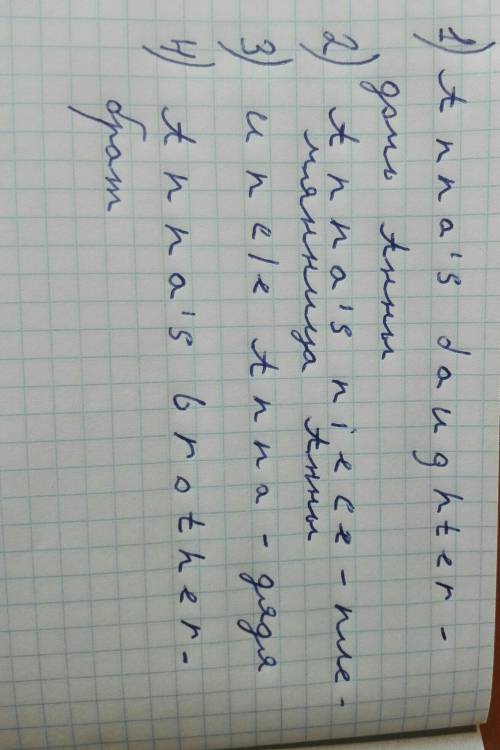 1) Anna's daughter -
дочь Анны
2) Anna's niece - пле-
мянница Анны
3) uncle Anna - дядя
4) Anna's brother -
брат